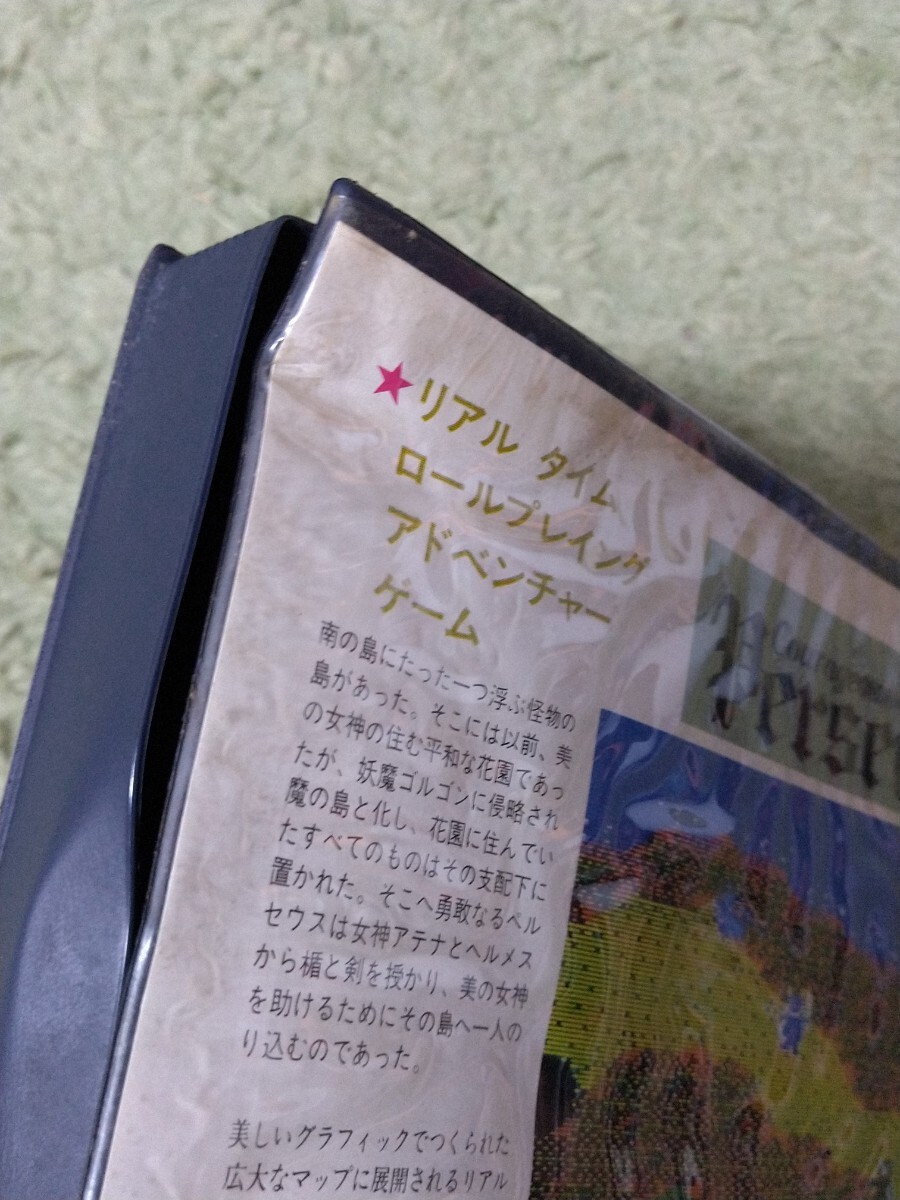 ★リアル タイム
ロールプレイング
アドベンチャー
ゲーム
南の島にたった一つ浮ぶ怪物の
島があった。そこには以前、美
の女神の住む平和な花園であっ
たが、妖魔ゴルゴンに侵略され
魔の島と化し、花園に住んでい
たすべてのものはその支配下に
置かれた。そこへ勇敢なるペル
セウスは女神アテナとヘルメス
から楯と剣を授かり、美の女神
を助けるためにその島へ一人の
り込むのであった。
美しいグラフィックでつくられた
広大なマップに展開されるリアル